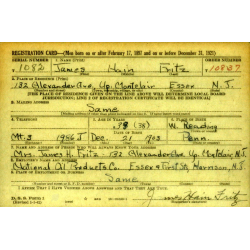 REGISTRATION CARD—(Men born on or after February 17, 1897 and on or before December 31, 1921)
SERIAL NUMBER 1. NAME (Print) ORDER NUMBER
1092 James Hain Fritz 10837
2. PLACE OF RESIDENCE (Print)
132 Alexander Ave Up. Montclair Essex N.J.
[THE PLACE OF RESIDENCE GIVEN ON THE LINE ABOVE WILL DETERMINE LOCAL BOARD
JURISDICTION; LINE 2 OF REGISTRATION CERTIFICATE WILL BE IDENTICAL]
3. MAILING ADDRESS
Same
4. TELEPHONE 5. AGE IN YEARS 6. PLACE OF BIRTH
38 W. Reading
DATE OF BIRTH
Mt. 3 Dec. 21 1903 Penn.
7. NAME AND ADDRESS OF PERSON WHO WILL ALWAYS KNOW YOUR ADDRESS
Mrs. James H. Fritz - 132 Alexander Ave Up. Montclair N.J.
8. EMPLOYER'S NAME AND ADDRESS
National Oil Products Co. Essex & First St. Harrison, N.J.
9. PLACE OF EMPLOYMENT OR BUSINESS
Same
I AFFIRM THAT I HAVE VERIFIED ABOVE ANSWERS AND THAT THEY ARE TRUE.
D. S. S. Form 1
James Hain Fritz